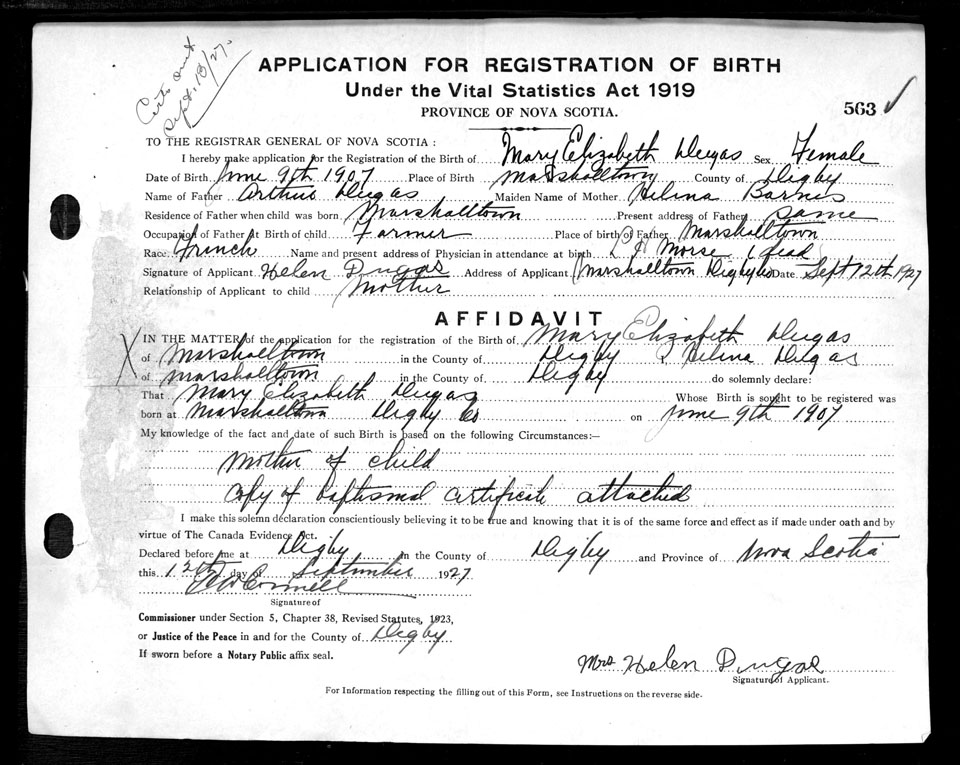 Certs sent
Sept. 13/27.
APPLICATION FOR REGISTRATION OF BIRTH
Under the Vital Statistics Act 1919
PROVINCE OF NOVA SCOTIA.
563 ✓
TO THE REGISTRAR GENERAL OF NOVA SCOTIA :
I hereby make application for the Registration of the Birth of Mary Elizabeth Dugas Sex Female
Date of Birth June 9th 1907 Place of Birth Marshalltown County of Digby
Name of Father Arthur Dugas Maiden Name of Mother Helina Barnes
Residence of Father when child was born Marshalltown Present address of Father same
Occupation of Father at Birth of child Farmer Place of birth of Father Marshalltown
Race French Name and present address of Physician in attendance at birth L H Morse (dead
Signature of Applicant Helen Dugas Address of Applicant Marshalltown Digby Co Date Sept 12th 1927
Relationship of Applicant to child Mother
AFFIDAVIT
X IN THE MATTER of the application for the registration of the Birth of Mary Elizabeth Dugas
of Marshalltown in the County of Digby I Helina Dugas
of Marshalltown in the County of Digby do solemnly declare:
That Mary Elizabeth Dugas Whose Birth is sought to be registered was
born at Marshalltown Digby Co on June 9th 1907
My knowledge of the fact and date of such Birth is based on the following Circumstances:—
Mother of child
Copy of baptismal certificate attached
I make this solemn declaration conscientiously believing it to be true and knowing that it is of the same force and effect as if made under oath and by
virtue of The Canada Evidence Act.
Declared before me at Digby in the County of Digby and Province of Nova Scotia
this 12th day of September 1927
Connell
Signature of
Commissioner under Section 5, Chapter 38, Revised Statutes, 1923,
or Justice of the Peace in and for the County of Digby
If sworn before a Notary Public affix seal.
Mrs Helen Dugas
Signature of Applicant.
For Information respecting the filling out of this Form, see Instructions on the reverse side.